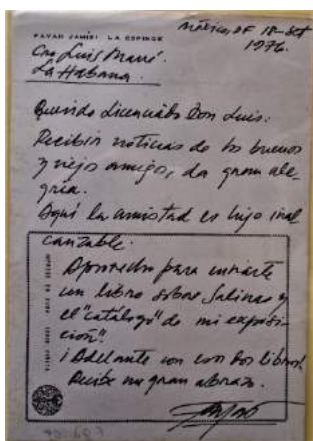 México, DF 18-Set
1976.
FAYAD JAMÍS: LA ESFINGE
Cro Luis Marré.
La Habana.
Querido Licenciado Don Luis:
Recibir noticias de los buenos
y viejos amigos, da gran ale-
gría.
Aquí la amistad es lujo inal
canzable.
Aprovecho para enviarte
un libro sobre Salinas y
el "catálogo" de mi exposi-
ción".
¡Adelante con los libros!
Recibe un gran abrazo.